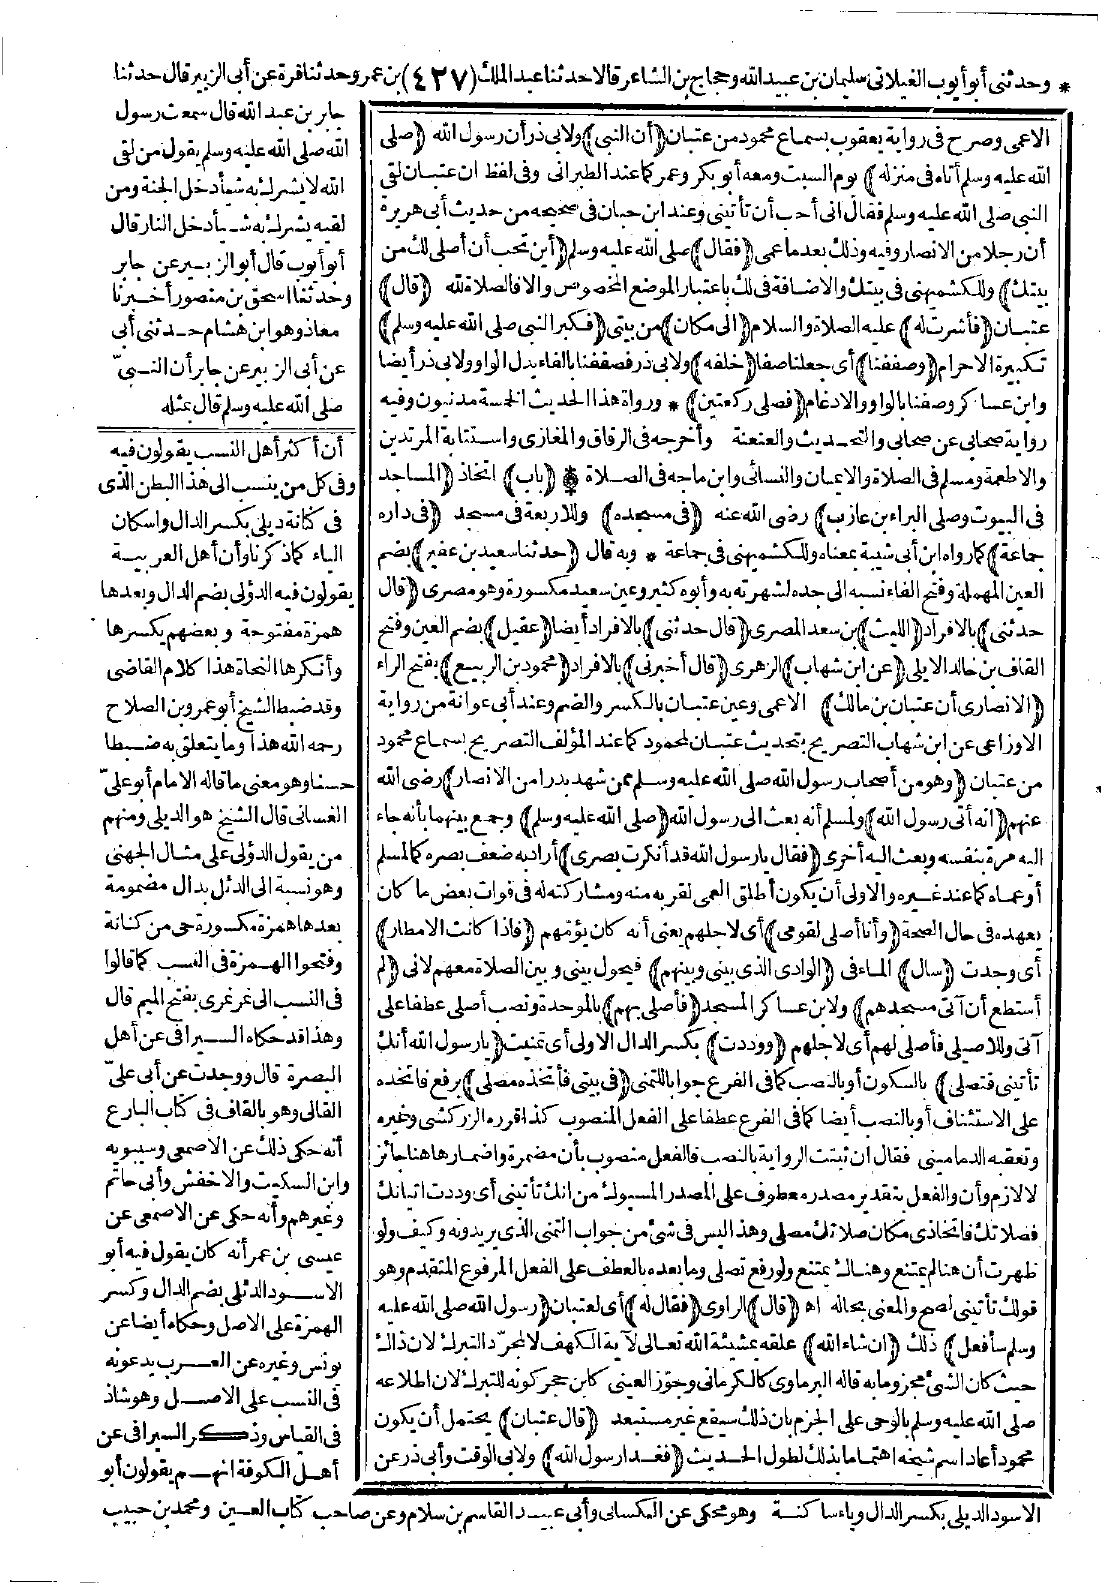 * وحدثني أبو أيوب الغيلاني سليمان بن عبيد الله وحجاج بن الشاعر قالا حدثنا عبد الملك (٤٢٧) بن عمرو حدثنا قرة عن أبي الزبير قال حدثنا
جابر بن عبد الله قال سمعت رسول
الله صلى الله عليه وسلم يقول من لقي
الله لا يشرك به شيأ دخل الجنة ومن
لقيه يشرك به شيأ دخل النار قال
أبو أيوب قال أبو الزبير عن جابر
وحدثنا اسحق بن منصور أخبرنا
معاذ وهو ابن هشام حدثني أبي
عن أبي الزبير عن جابر أن النبي
صلى الله عليه وسلم قال بمثله
أن أكثر أهل النسب يقولون فيه
وفي كل من ينسب الى هذا البطن الذي
في كنانة ديلي بكسر الدال واسكان
الياء كما ذكرنا وأن أهل العربية
يقولون فيه الدؤلي بضم الدال وبعدها
همزة مفتوحة وبعضهم يكسرها
وأنكرها النحاة هذا كلام القاضي
وقد ضبط الشيخ أبو عمرو بن الصلاح
رحمه الله هذا وما يتعلق به ضبطا
حسنا وهو معنى ما قاله الامام أبو علي
الغساني قال الشيخ هو الديلي ومنهم
من يقول الدؤلي على مثال الجهني
وهو نسبة الى الدئل بدال مضمومة
بعدها همزة مكسورة حي من كنانة
وفتحوا الهمزة في النسب كما قالوا
في النسب الى نمر نمري بفتح الميم قال
وهذا قد حكاه السيرافي عن أهل
البصرة قال ووجدت عن أبي علي
القالي وهو بالقاف في كتاب البارع
أنه حكى ذلك عن الاصمعي وسيبويه
وابن السكيت والاخفش وأبي حاتم
وغيرهم وأنه حكى عن الاصمعي عن
عيسى بن عمر أنه كان يقول فيه أبو
الاسود الدئلي بضم الدال وكسر
الهمزة على الاصل وحكاه أيضا عن
يونس وغيره عن العرب يدعونه
في النسب على الاصل وهو شاذ
في القياس وذكر السيرافي عن
أهل الكوفة انهم يقولون أبو
الاسود الديلي بكسر الدال وياء ساكنة وهو محكي عن الكسائي وأبي عبيد القاسم بن سلام وعن صاحب كتاب العين ومحمد بن حبيب
الاعمى وصرح في رواية يعقوب بسماع محمود من عتبان (أن النبي) ولابي ذر أن رسول الله (صلى
الله عليه وسلم أتاه في منزله) يوم السبت ومعه أبو بكر وعمر كما عند الطبراني وفي لفظ ان عتبان لقي
النبي صلى الله عليه وسلم فقال اني أحب أن تأتيني وعند ابن حبان في صحيحه من حديث أبي هريرة
أن رجلا من الانصار وفيه وذلك بعد ما عمى (فقال) صلى الله عليه وسلم (أين تحب أن أصلي لك من
بيتك) وللكشميهني في بيتك والاضافة في لك باعتبار الموضع المخصوص والا فالصلاة لله (قال)
عتبان (فأشرت له) عليه الصلاة والسلام (الى مكان) من بيتي (فكبر النبي صلى الله عليه وسلم)
تكبيرة الاحرام (وصففنا) أي جعلنا صفا (خلفه) ولابي ذر فصففنا بالفاء بدل الواو ولابي ذر أيضا
وابن عساكر وصفنا بالواو والادغام (فصلى ركعتين) * ورواة هذا الحديث الخمسة مدنيون وفيه
رواية صحابي عن صحابي والتحديث والعنعنة وأخرجه في الرقاق والمغازي واستتابة المرتدين
والاطعمة ومسلم في الصلاة والايمان والنسائي وابن ماجه في الصلاة * (باب) اتخاذ (المساجد
في البيوت وصلى البراء بن عازب) رضي الله عنه (في مسجده) وللاربعة في مسجد (في داره
جماعة) كما رواه ابن أبي شيبة بمعناه وللكشميهني في جماعة * وبه قال (حدثنا سعيد بن عفير) بضم
العين المهملة وفتح الفاء نسبه الى جده لشهرته به وأبوه كثير وعين سعيد مكسورة وهو مصري (قال
حدثني) بالافراد (الليث) بن سعد المصري (قال حدثني) بالافراد أيضا (عقيل) بضم العين وفتح
القاف بن خالد الايلي (عن ابن شهاب) الزهري (قال أخبرني) بالافراد (محمود بن الربيع) بفتح الراء
(الانصاري أن عتبان بن مالك) الاعمى وعين عتبان بالكسر والضم وعند أبي عوانة من رواية
الاوزاعي عن ابن شهاب التصريح بتحديث عتبان لمحمود كما عند المؤلف التصريح بسماع محمود
من عتبان (وهو من أصحاب رسول الله صلى الله عليه وسلم ممن شهد بدرا من الانصار) رضي الله
عنهم (انه أتى رسول الله) ولمسلم أنه بعث الى رسول الله (صلى الله عليه وسلم) وجمع بينهما بأنه جاء
اليه مرة بنفسه وبعث اليه أخرى (فقال يا رسول الله قد أنكرت بصري) أراد به ضعف بصره كما لمسلم
أو عماه كما عند غيره والاولى أن يكون أطلق العمى لقربه منه ومشاركته له في فوات بعض ما كان
يعهده في حال الصحة (وأنا أصلي لقومي) أي لاجلهم يعني أنه كان يؤمهم (فاذا كانت الامطار)
أي وجدت (سال) الماء في (الوادي الذي بيني وبينهم) فيحول بيني وبين الصلاة معهم لاني (لم
أستطع أن آتي مسجدهم) ولابن عساكر المسجد (فأصلي بهم) بالموحدة ونصب أصلي عطفا على
آتي وللاصيلي فأصلي لهم أي لاجلهم (ووددت) بكسر الدال الاولى أي تمنيت (يا رسول الله أنك
تأتيني فتصلي) بالسكون أو بالنصب كما في الفرع جوابا للتمني (في بيتي فأتخذه مصلى) برفع فأتخذه
على الاستئناف أو بالنصب أيضا كما في الفرع عطفا على الفعل المنصوب كذا قرره الزركشي وغيره
وتعقبه الدماميني فقال ان ثبتت الرواية بالنصب فالفعل منصوب بأن مضمرة واضمارها هنا جائز
لا لازم وأن والفعل بتقدير مصدر معطوف على المصدر المسبوك من انك تأتيني أي وددت اتيانك
فصلاتك فاتخاذي مكان صلاتك مصلى وهذا ليس في شئ من جواب التمني الذي يريدونه وكيف ولو
ظهرت أن هنا لم يمتنع وهناك يمتنع ولو رفع تصلي وما بعده بالعطف على الفعل المرفوع المتقدم وهو
قولك تأتيني لصح والمعنى بحاله اه (قال) الراوي (فقال له) أي لعتبان (رسول الله صلى الله عليه
وسلم سأفعل) ذلك (ان شاء الله) علقه بمشيئة الله تعالى لآية الكهف لا لمجرد التبرك لان ذاك
حيث كان الشئ مجزوما به قاله البرماوي كالكرماني وجوز العيني كابن حجر كونه للتبرك لان اطلاعه
صلى الله عليه وسلم بالوحي على الجزم بان ذلك سيقع غير مستبعد (قال عتبان) يحتمل أن يكون
محمود أعاد اسم شيخه اهتماما بذلك لطول الحديث (فغدا رسول الله) ولابي الوقت وأبي ذر عن